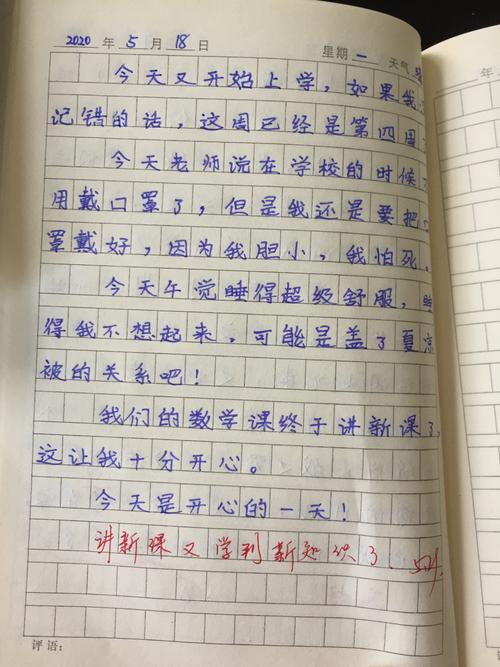 2020 年 5 月 18 日 星期 一 天气
今天又开始上学，如果我
记错的话，这周已经是第四周
今天老师说在学校的时候
用戴口罩了，但是我还是要把
罩戴好，因为我胆小，我怕死。
今天午觉睡得超级舒服，睡
得我不想起来，可能是盖了夏凉
被的关系吧！
我们的数学课终于讲新课了，
这让我十分开心。
今天是开心的一天！
讲新课又学到新知识了．5.19.
评语：
年